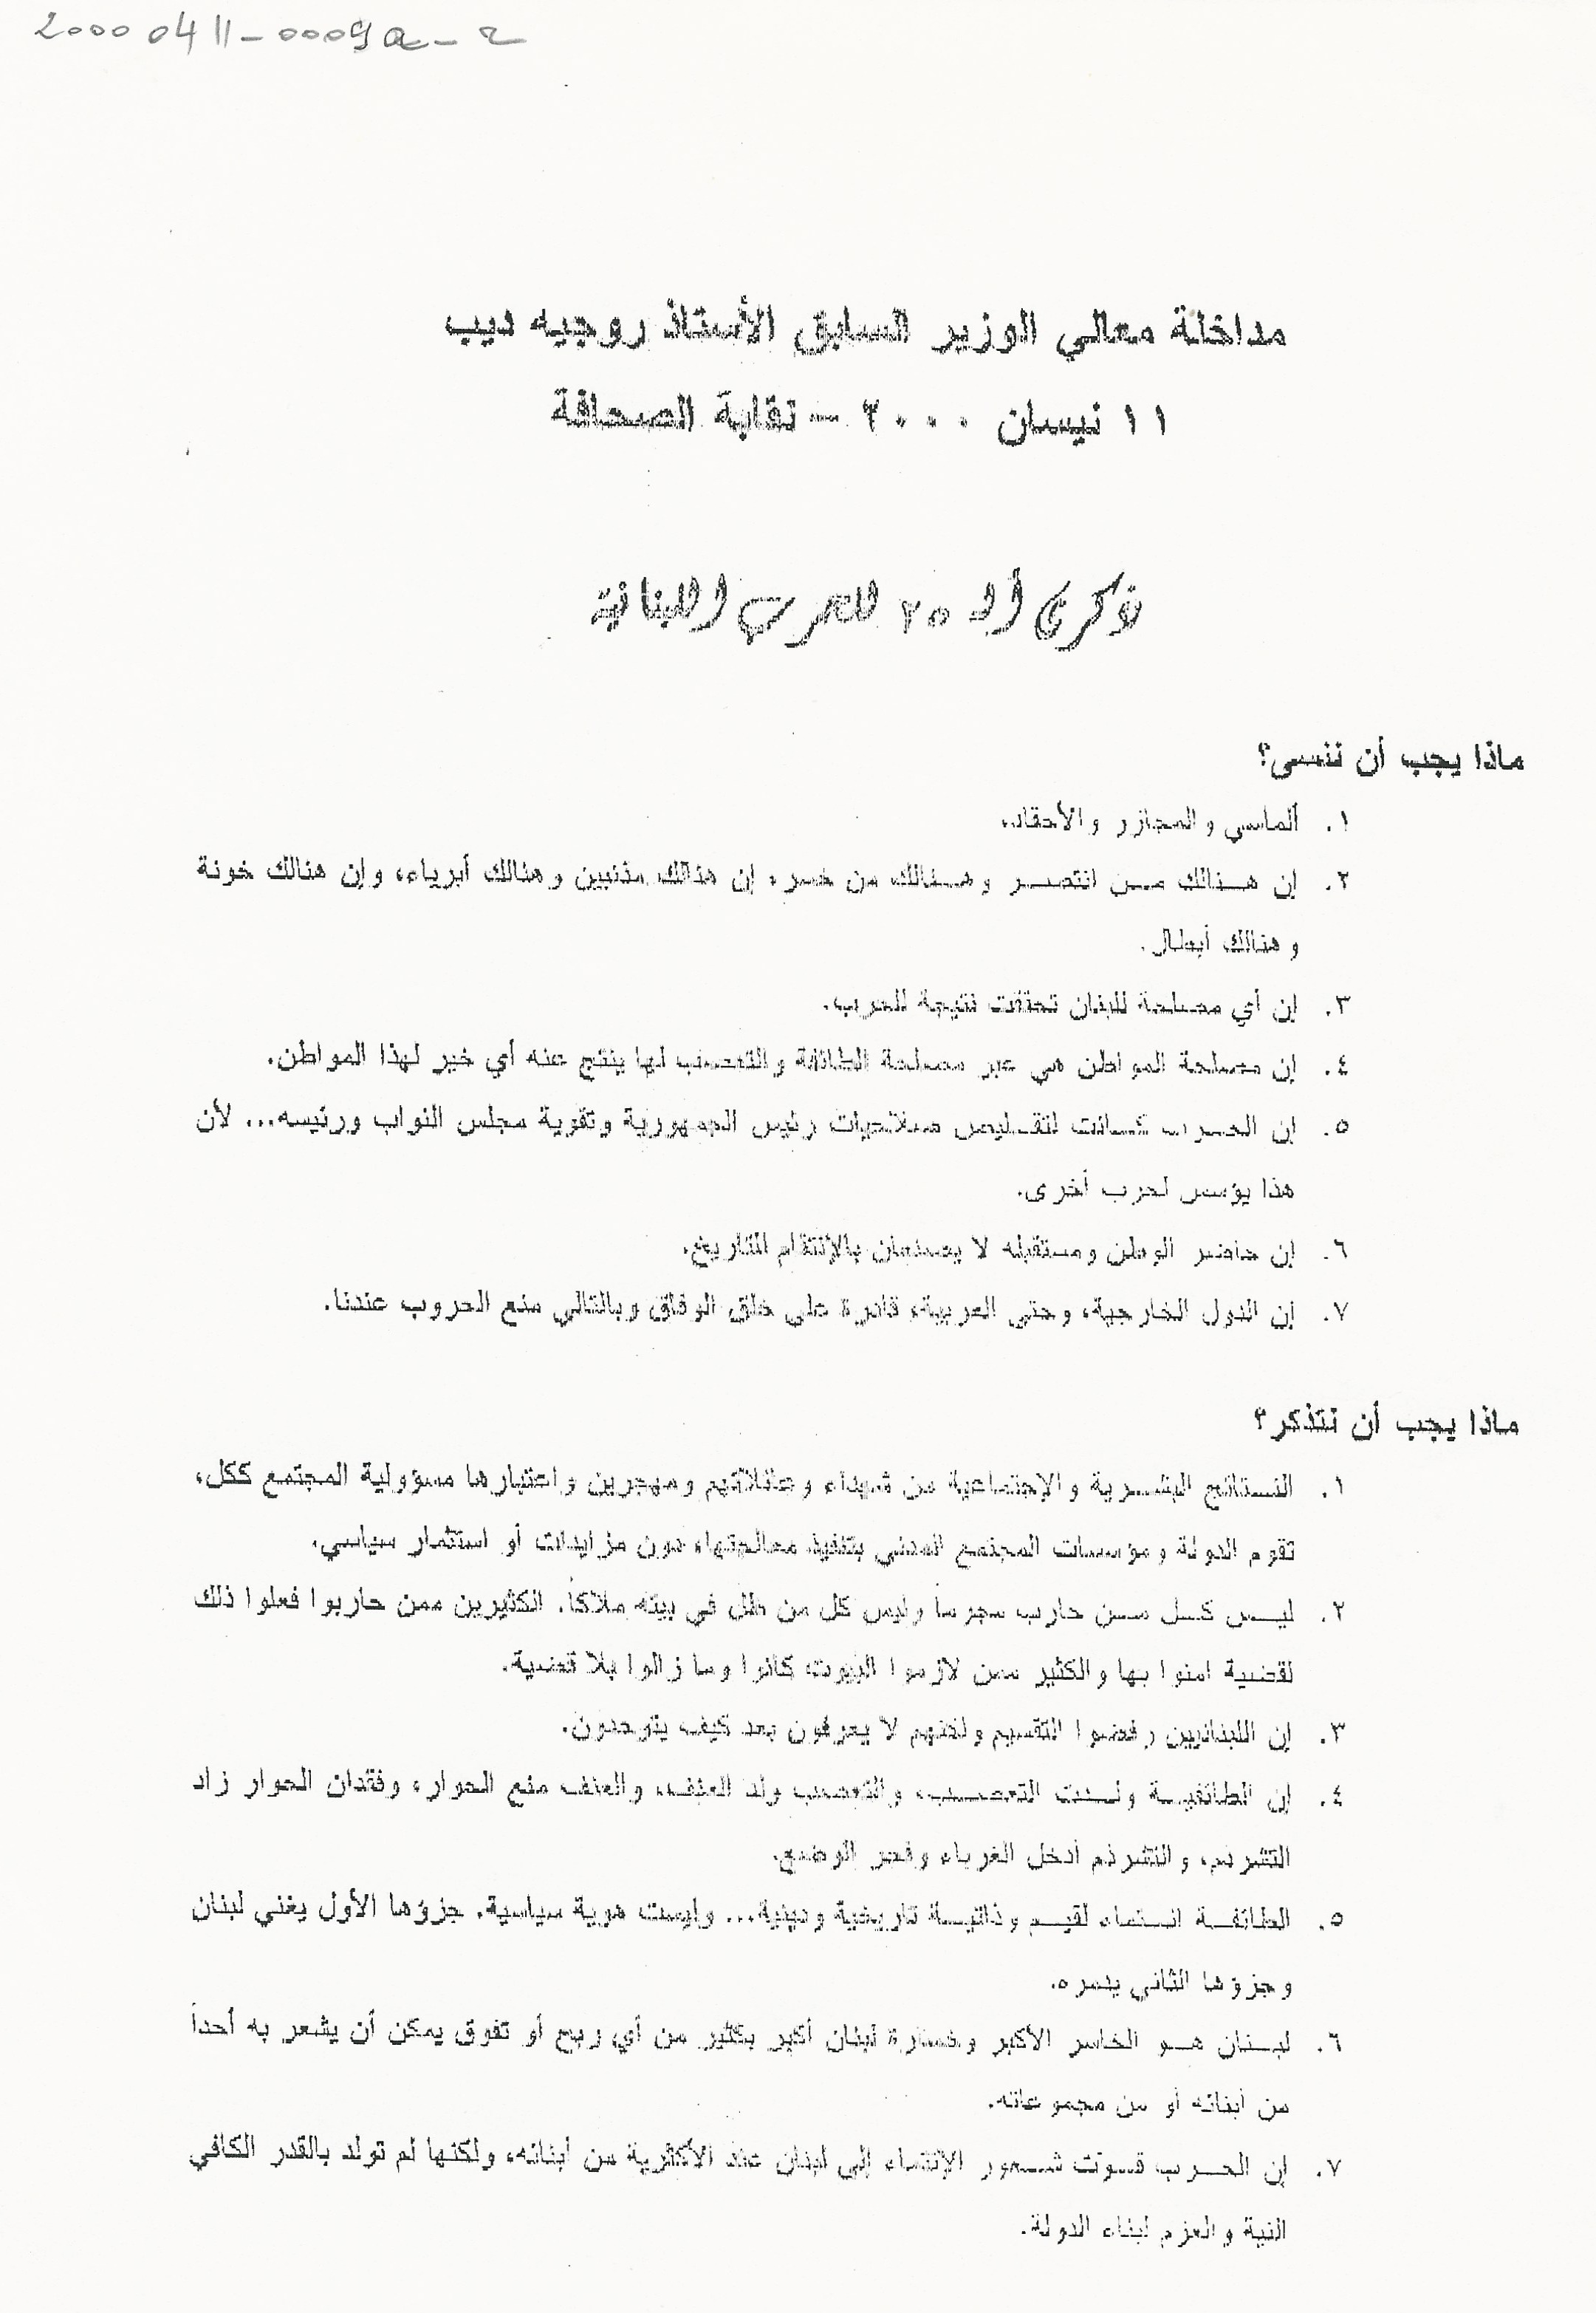 20000411-0009a-2
مداخلة معالي الوزير السابق الأستاذ روجيه ديب
١١ نيسان ٢٠٠٠ – نقابة الصحافة
ذكرى أل ٢٥ للحرب اللبنانية
ماذا يجب أن ننسى؟
١. ألماسي والمجازر والأحقاد.
٢. إن هنالك من انتصر وهنالك من خسر، إن هنالك مذنبين وهنالك أبرياء، وإن هنالك خونة
وهنالك أبطال.
٣. إن أي مصلحة للبنان تحققت نتيجة للحرب.
٤. إن مصلحة المواطن هي عبر مصلحة الطائفة والتعصب لها ينتج عنه أي خير لهذا المواطن.
٥. إن الحرب كانت لتقليص صلاحيات رئيس الجمهورية وتقوية مجلس النواب ورئيسه... لأن
هذا يؤسس لحرب أخرى.
٦. إن حاضر الوطن ومستقبله لا يصنعان بالإنتقام للتاريخ.
٧. إن الدول الخارجية، وحتى العربية، قادرة على خلق الوفاق وبالتالي منع الحروب عندنا.
ماذا يجب أن نتذكر؟
١. النتائج البشرية والإجتماعية من شهداء وعائلاتهم ومهجرين واعتبارها مسؤولية المجتمع ككل،
تقوم الدولة ومؤسسات المجتمع المدني بتنفيذ معالجتها، دون مزايدات أو استثمار سياسي.
٢. ليس كل من حارب مجرماً وليس كل من ظل في بيته ملاكاً. الكثيرين ممن حاربوا فعلوا ذلك
لقضية امنوا بها والكثير ممن لازموا البيوت كانوا وما زالوا بلا قضية.
٣. إن اللبنانيين رفضوا التقسيم ولكنهم لا يعرفون بعد كيف يتوحدون.
٤. إن الطائفية ولدت التعصب، والتعصب ولد العنف، والعنف منع الحوار، وفقدان الحوار زاد
التشرذم، والتشرذم أدخل الغرباء وفجر الوضع.
٥. الطائفة انتماء لقيم وذاتية تاريخية ودينية... وليست هوية سياسية. جزؤها الأول يغني لبنان
وجزؤها الثاني يدمره.
٦. لبنان هو الخاسر الأكبر وخسارة لبنان أكبر بكثير من أي ربح أو تفوق يمكن أن يشعر به أحداً
من أبنائه أو من مجموعاته.
٧. إن الحرب قوت شعور الإنتماء إلى لبنان عند الأكثرية من أبنائه، ولكنها لم تولد بالقدر الكافي
النية والعزم لبناء الدولة.